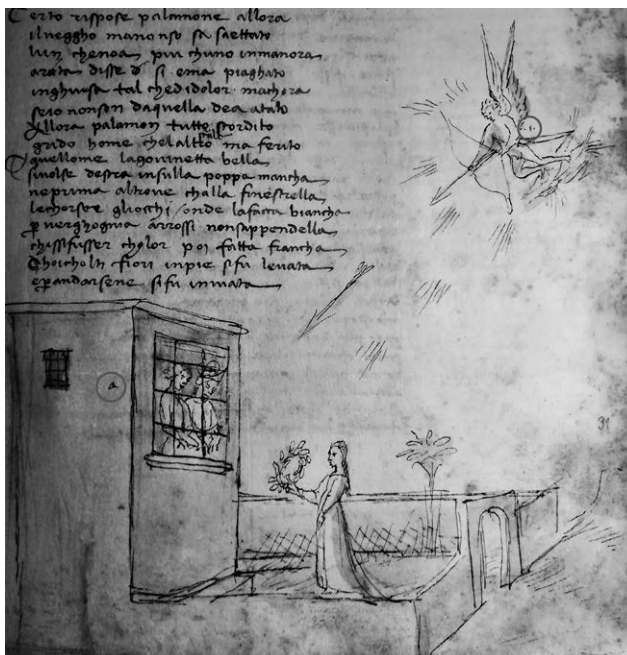 Certo rispose palamone allora
ilueggho ma non so sa saettato
lun chenoa piu chuno inmanora
disse si ema piaghato
inghuisa tal chedidolor machora
seio nonson daquella dea atato
Allora palamon tutto stordito
grido home chelaltro ma ferito
A quellome lagiouinetta bella
siuolse destra insulla poppa mancha
ne prima altroue challa finestrella
lechorsor gliocchi onde lafaccia biancha
p verghogna arrossi nonsappendella
chissifusser cholor poi fatta francha
Choicholti fiori inpie sifu leuata
e p andarsene sifu inuiata
a